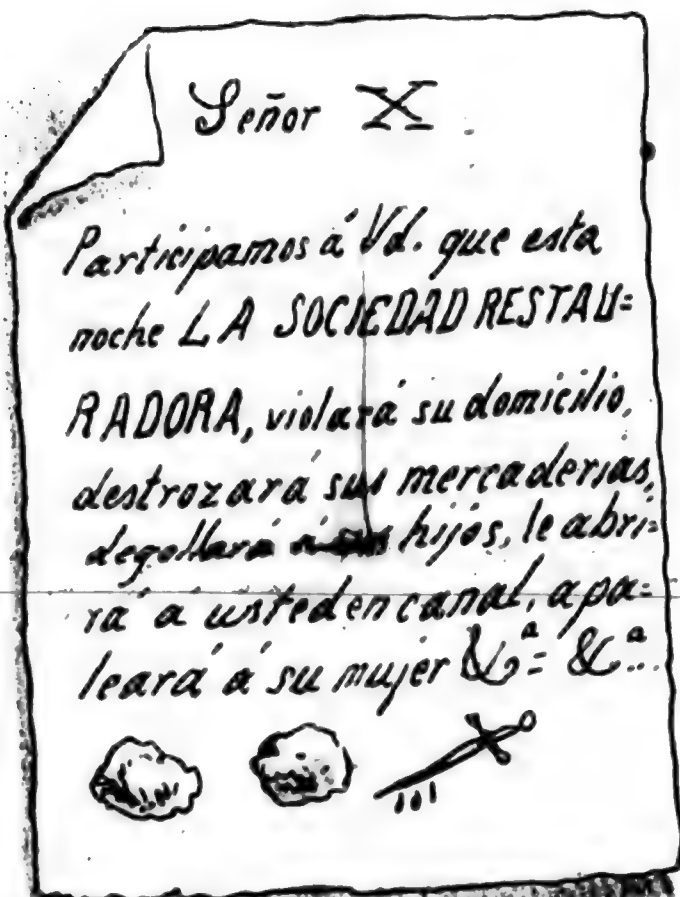 Señor X
Participamos á Vd. que esta
noche LA SOCIEDAD RESTAU=
RADORA, violará su domicilio,
destrozará sus mercaderias,
degollará hijos, le abri=
rá á usted en canal, apa=
leará á su mujer &ª= &ª...